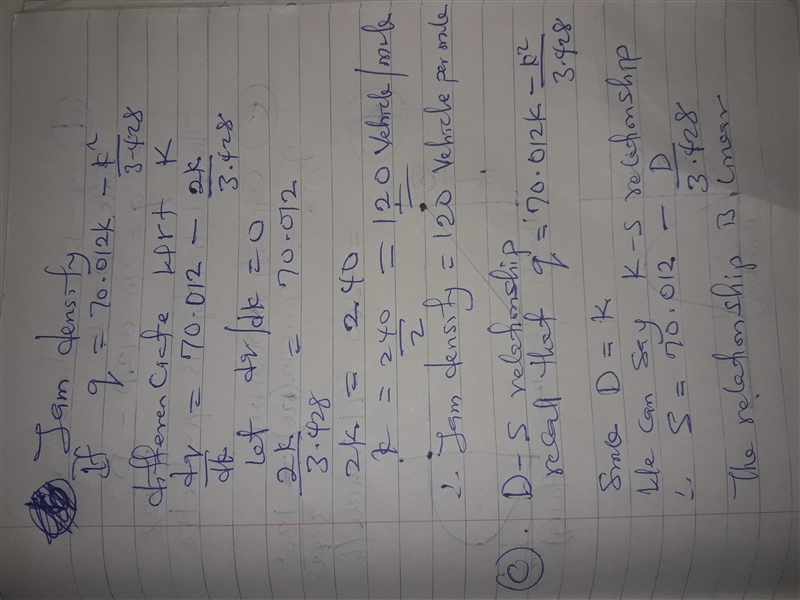 Jam density
If q = 70.012k - k²/3.428
differenciate wrt k
dq/dk = 70.012 - 2k/3.428
let dq/dk = 0
2k/3.428 = 70.012
2k = 240
k = 240/2 = 120 Vehicle/mile
∴ Jam density = 120 Vehicle per mile
(C). D-S relationship
recall that q = 70.012k - k²/3.428
Since D = K
We can say K-S relationship
∴ S = 70.012 - D/3.428
The relationship is linear